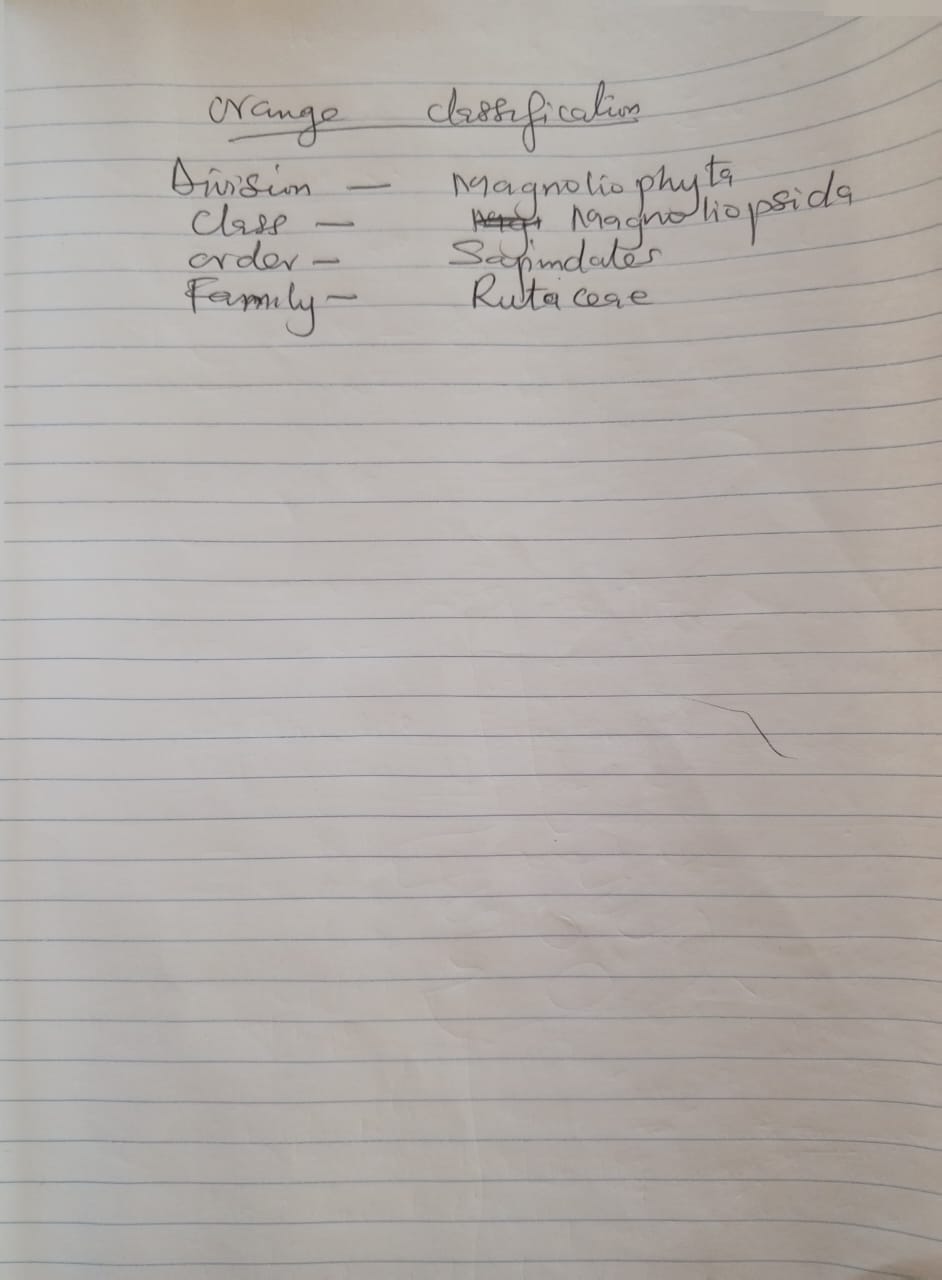 Orange classification
Division — Magnoliophyta
Class — Magnoliopsida
order — Sapindales
Family — Rutaceae